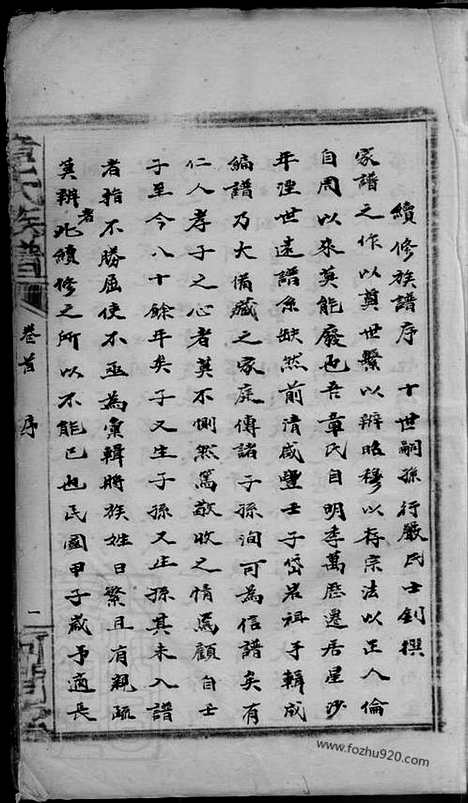 續修族譜序　十世嗣孫行嚴氏士釗撰
家譜之作以奠世繫以辨昭穆以存宗法以正人倫
自周以來莫能廢也吾章氏自明季萬歷遷居星沙
年湮世遠譜系缺然前清咸豐壬子岱岩祖手輯成
編譜乃大備藏之家庭傳諸子孫洵可為信譜矣有
仁人孝子之心者莫不惻然篤敬收之情焉顧自壬
子至今八十餘年矣子又生子孫又生孫其未入譜
者指不勝屈使不亟為彙輯將族姓日繁且有親疏
莫辨者此續修之所以不能已也民國甲子歲予適長
章氏族譜
卷首　序
一
河間堂
www.fozhu920.com